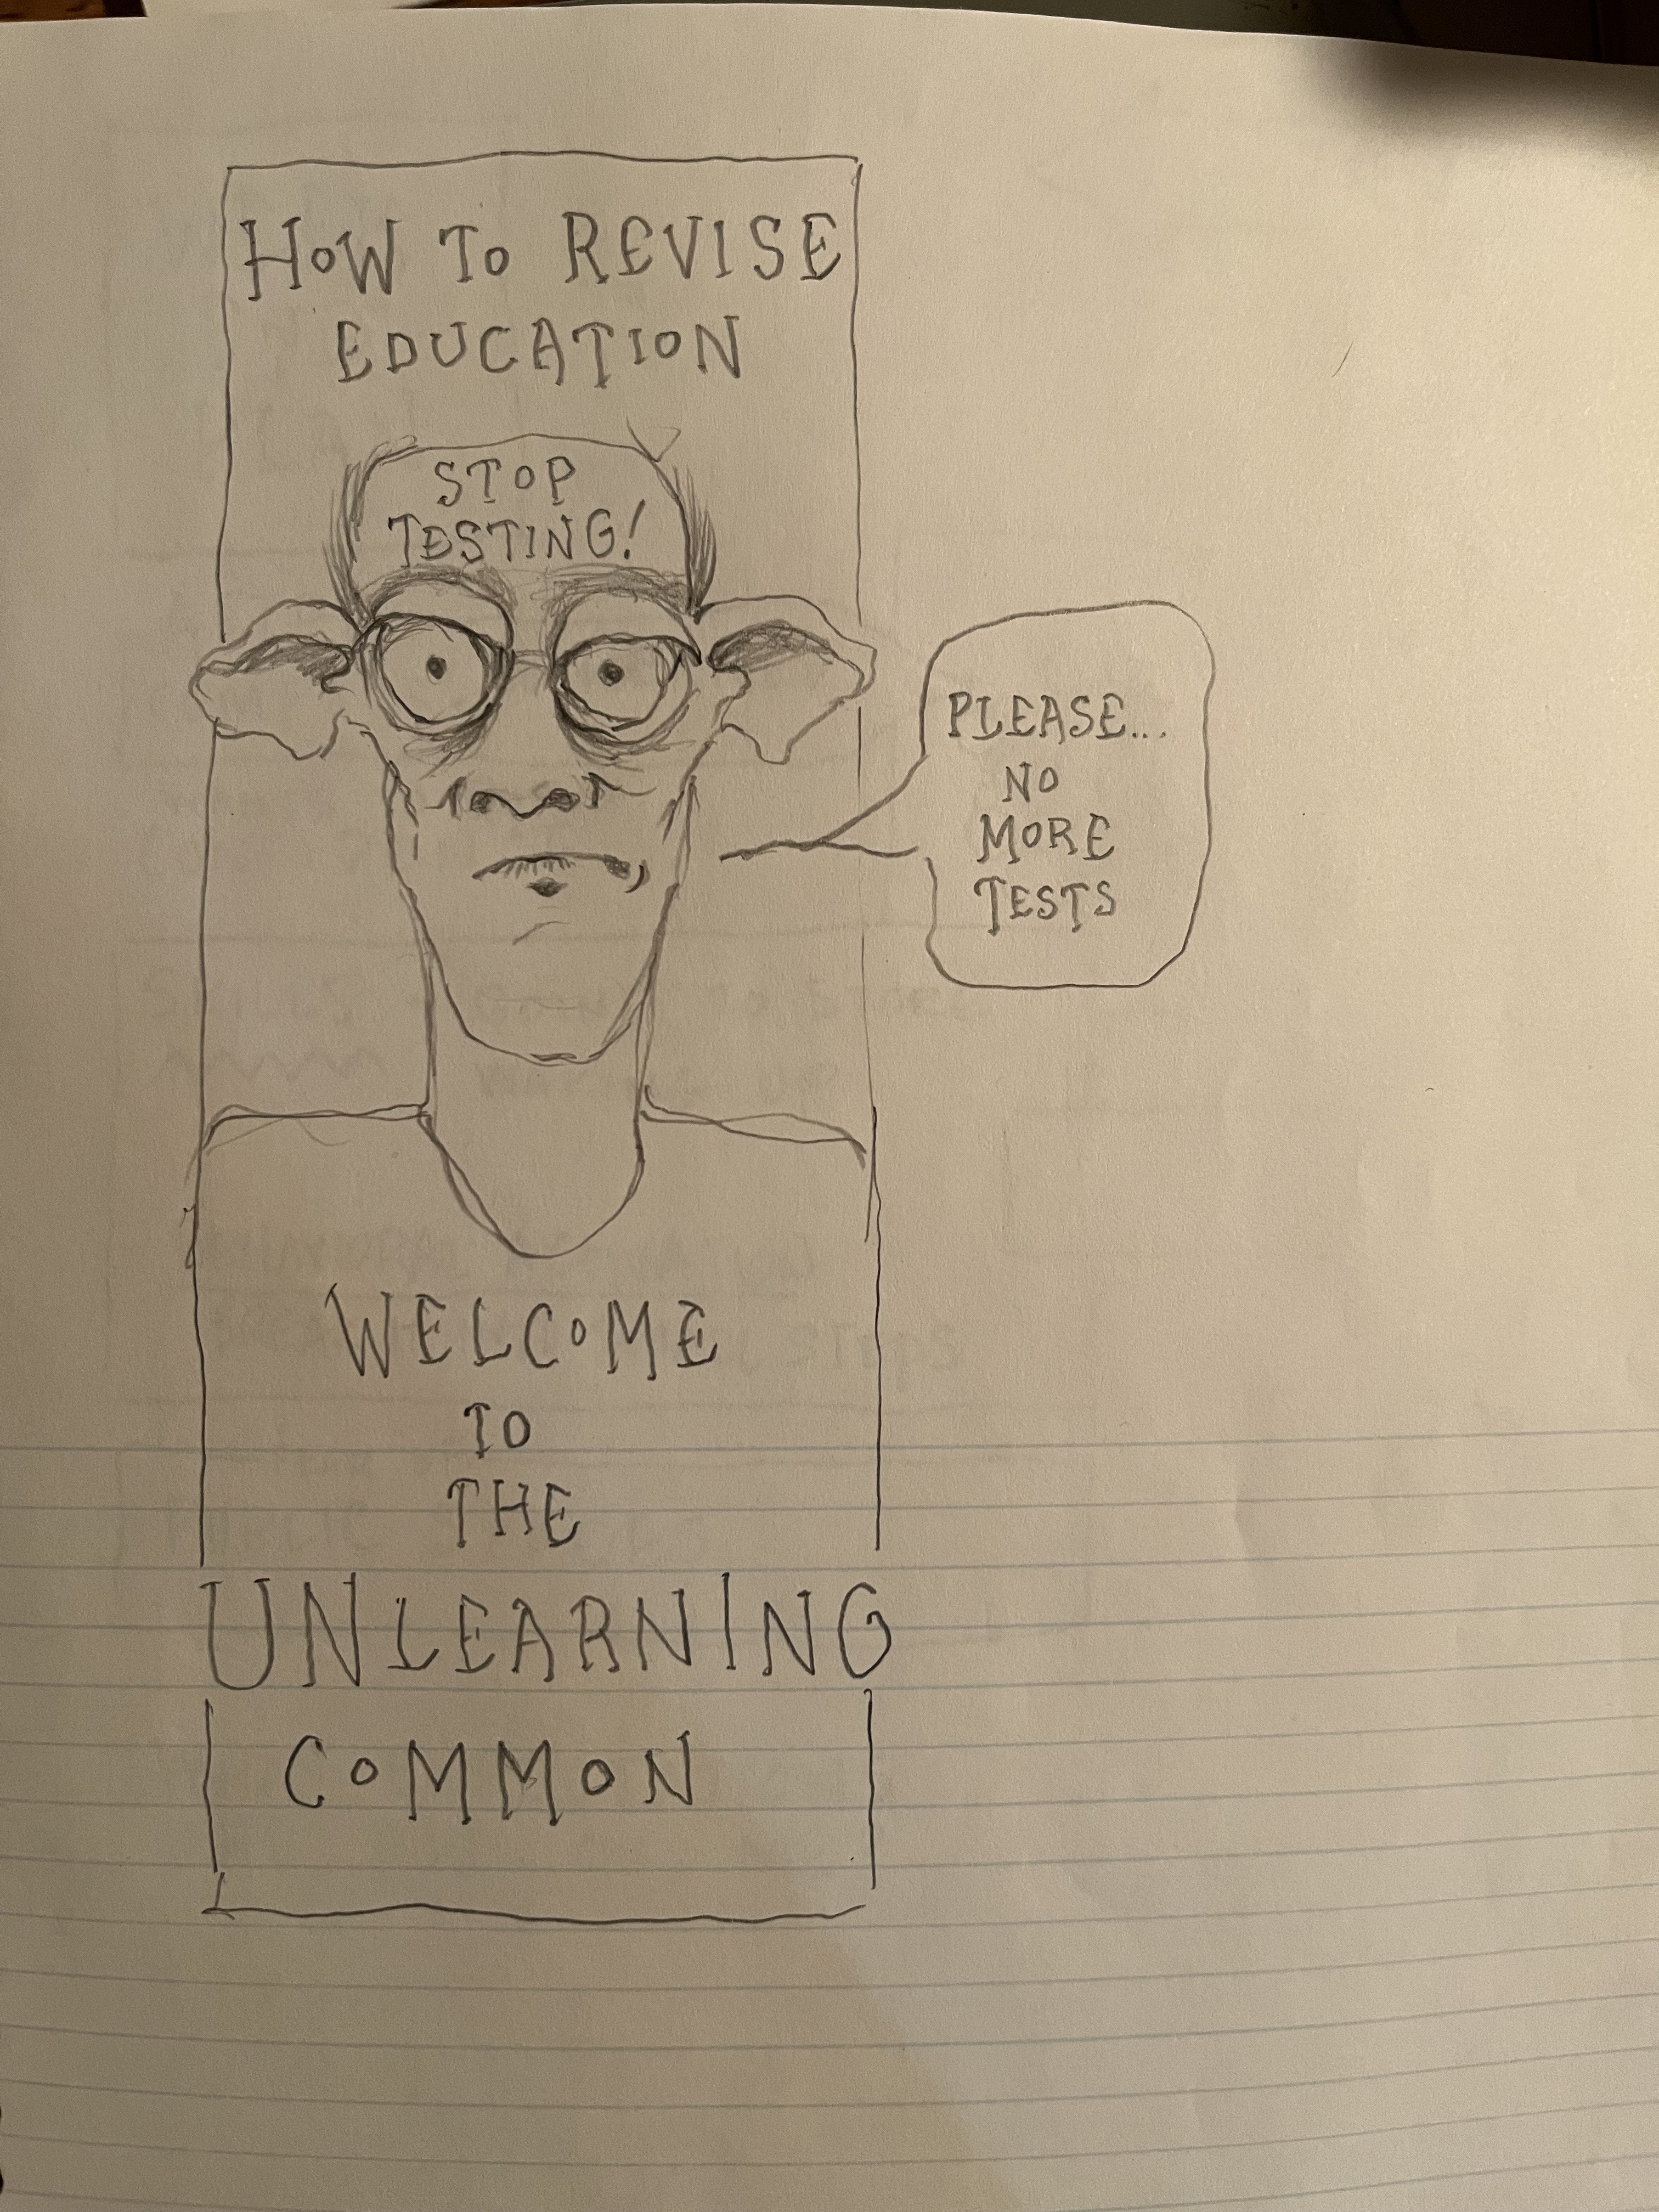 HOW TO REVISE
EDUCATION
STOP
TESTING!
PLEASE...
NO
MORE
TESTS
WELCOME
TO
THE
UNLEARNING
COMMON